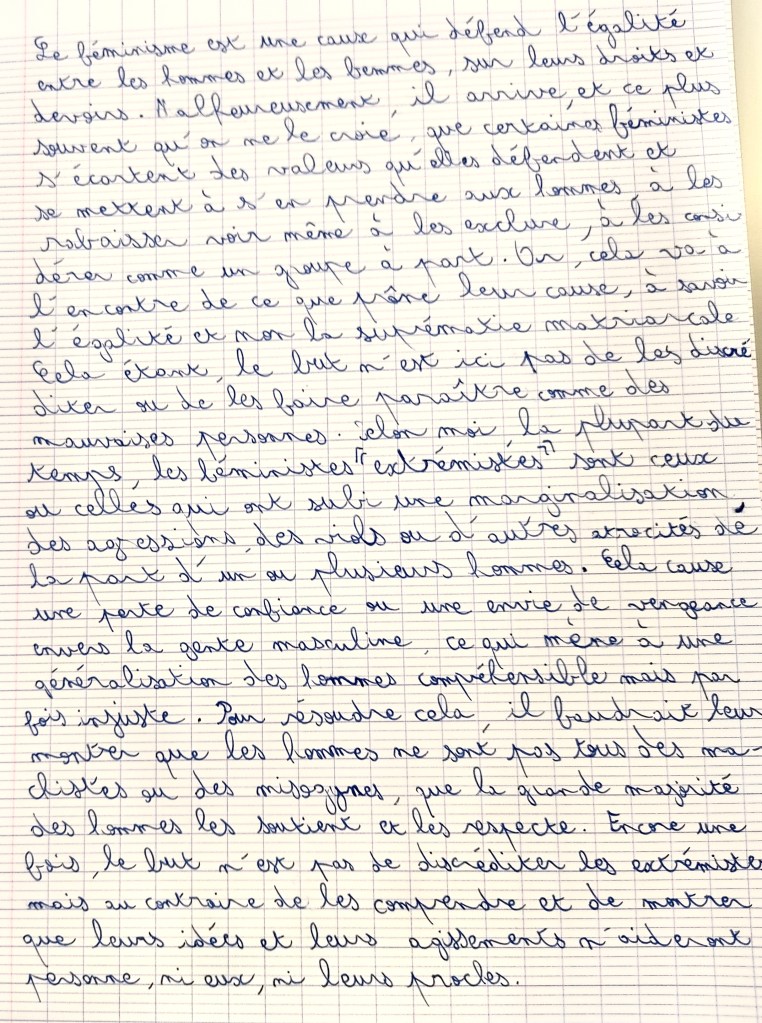 Le féminisme est une cause qui défend l'égalité
entre les hommes et les femmes, sur leurs droits et
devoirs. Malheureusement, il arrive, et ce plus
souvent qu'on ne le croie, que certaines féministes
s'écartent des valeurs qu'elles défendent et
se mettent à s'en prendre aux hommes, à les
rabaisser voir même à les exclure, à les consi
dérer comme un groupe à part. Or, cela va à
l'encontre de ce que prône leur cause, à savoir
l'égalité et non la suprématie matriarcale.
Cela étant, le but n'est ici pas de les discré
diter ou de les faire paraître comme des
mauvaises personnes. Selon moi la plupart du
temps, les féministes "extrémistes" sont ceux
ou celles qui ont subi une marginalisation
des agressions, des viols ou d'autres atrocités de
la part d'un ou plusieurs hommes. Cela cause
une perte de confiance ou une envie de vengeance
envers la gente masculine, ce qui mène à une
généralisation des hommes compréhensible mais par
fois injuste. Pour résoudre cela, il faudrait leur
montrer que les hommes ne sont pas tous des ma-
chistes ou des misogynes, que la grande majorité
des hommes les soutient et les respecte. Encore une
fois, le but n'est pas de discréditer les extrémistes
mais au contraire de les comprendre et de montrer
que leurs idées et leurs agissements n'aideront
personne, ni eux, ni leurs proches.